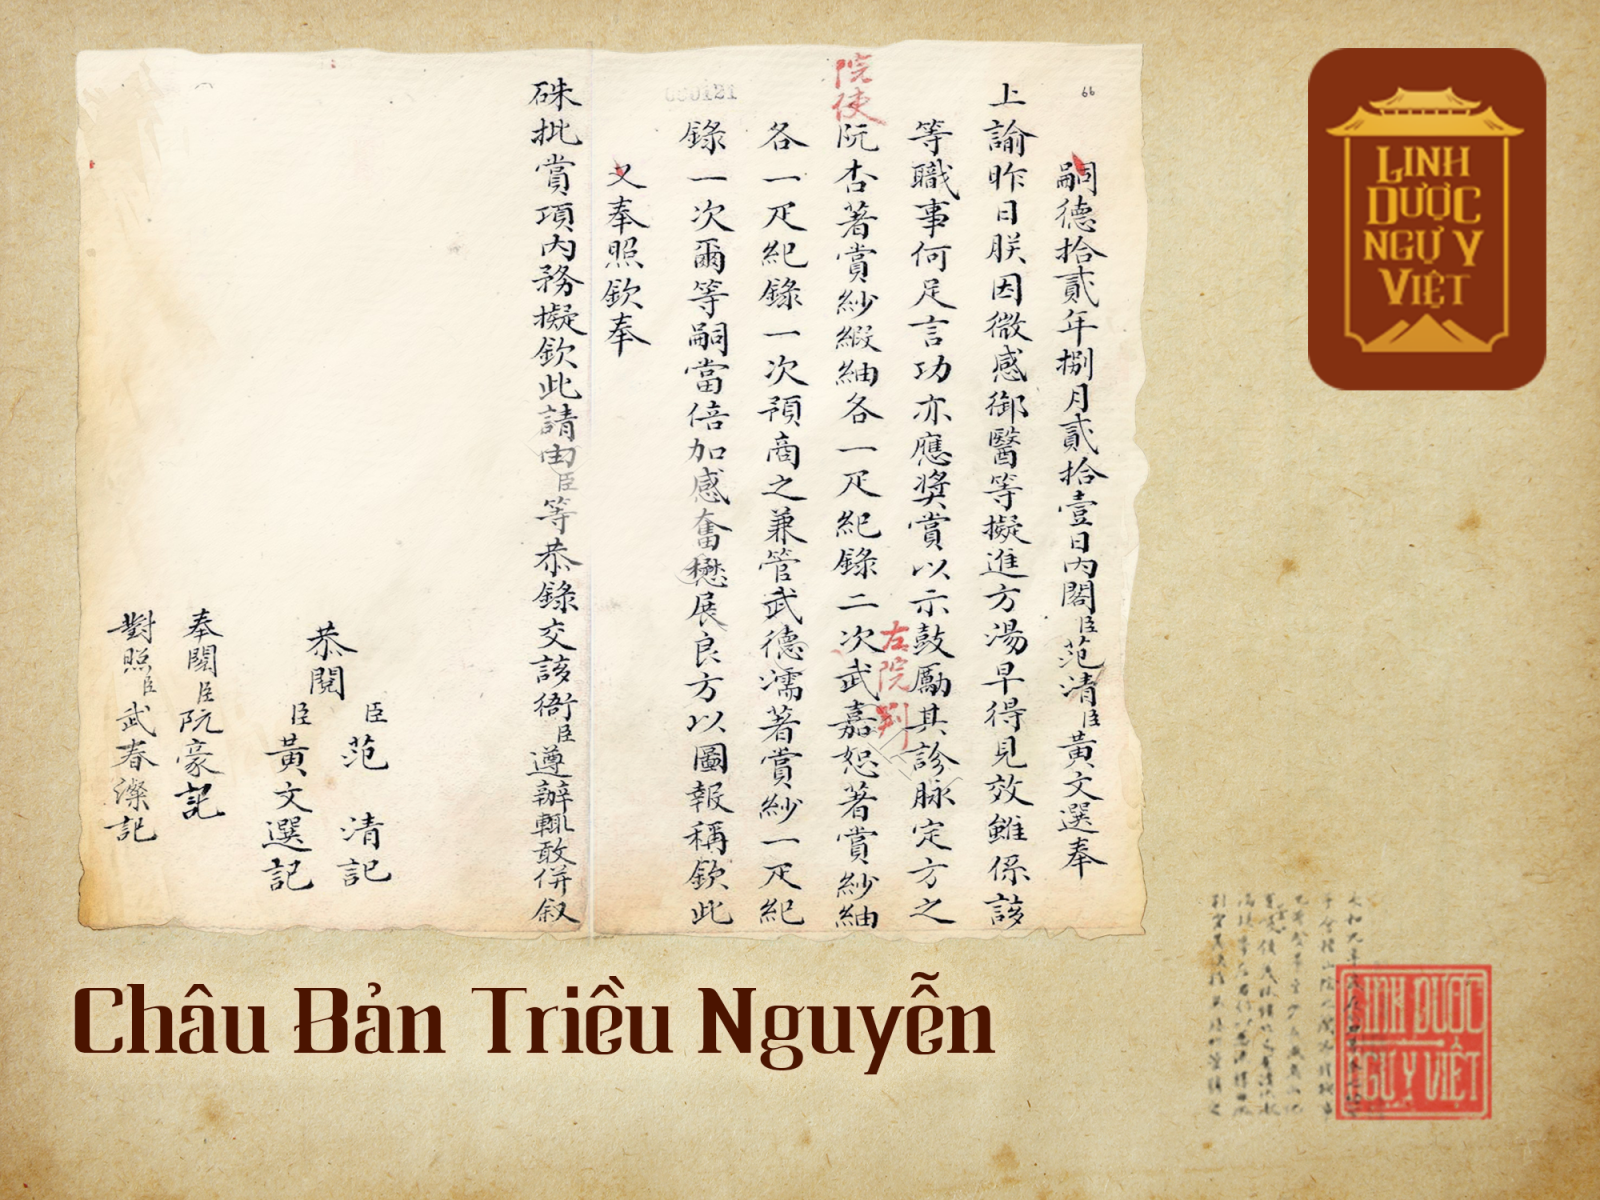 66
嗣德拾貳年捌月貳拾壹日內閣臣范清臣黃文選奉
上諭昨日朕因微感御醫等擬進方湯早得見效雖係該
等職事何足言功亦應獎賞以示鼓勵其診脉定方之
院使
阮杏著賞紗緞紬各一疋紀錄二次武嘉恕著賞紗紬
左院判
各一疋紀錄一次預商之兼管武德濡著賞紗一疋紀
錄一次爾等嗣當倍加感奮懋展良方以圖報稱欽此
000121
又奉照欽奉
硃批賞項內務擬欽此請由臣等恭錄交該衙臣遵辦輒敢併叙
恭閱
臣范清記
臣黃文選記
奉閱臣阮豪記
對照臣武春燦記
LINH
DƯỢC
NGỰ Y
VIỆT
Châu Bản Triều Nguyễn
LINH DƯỢC
NGỰ Y VIỆT